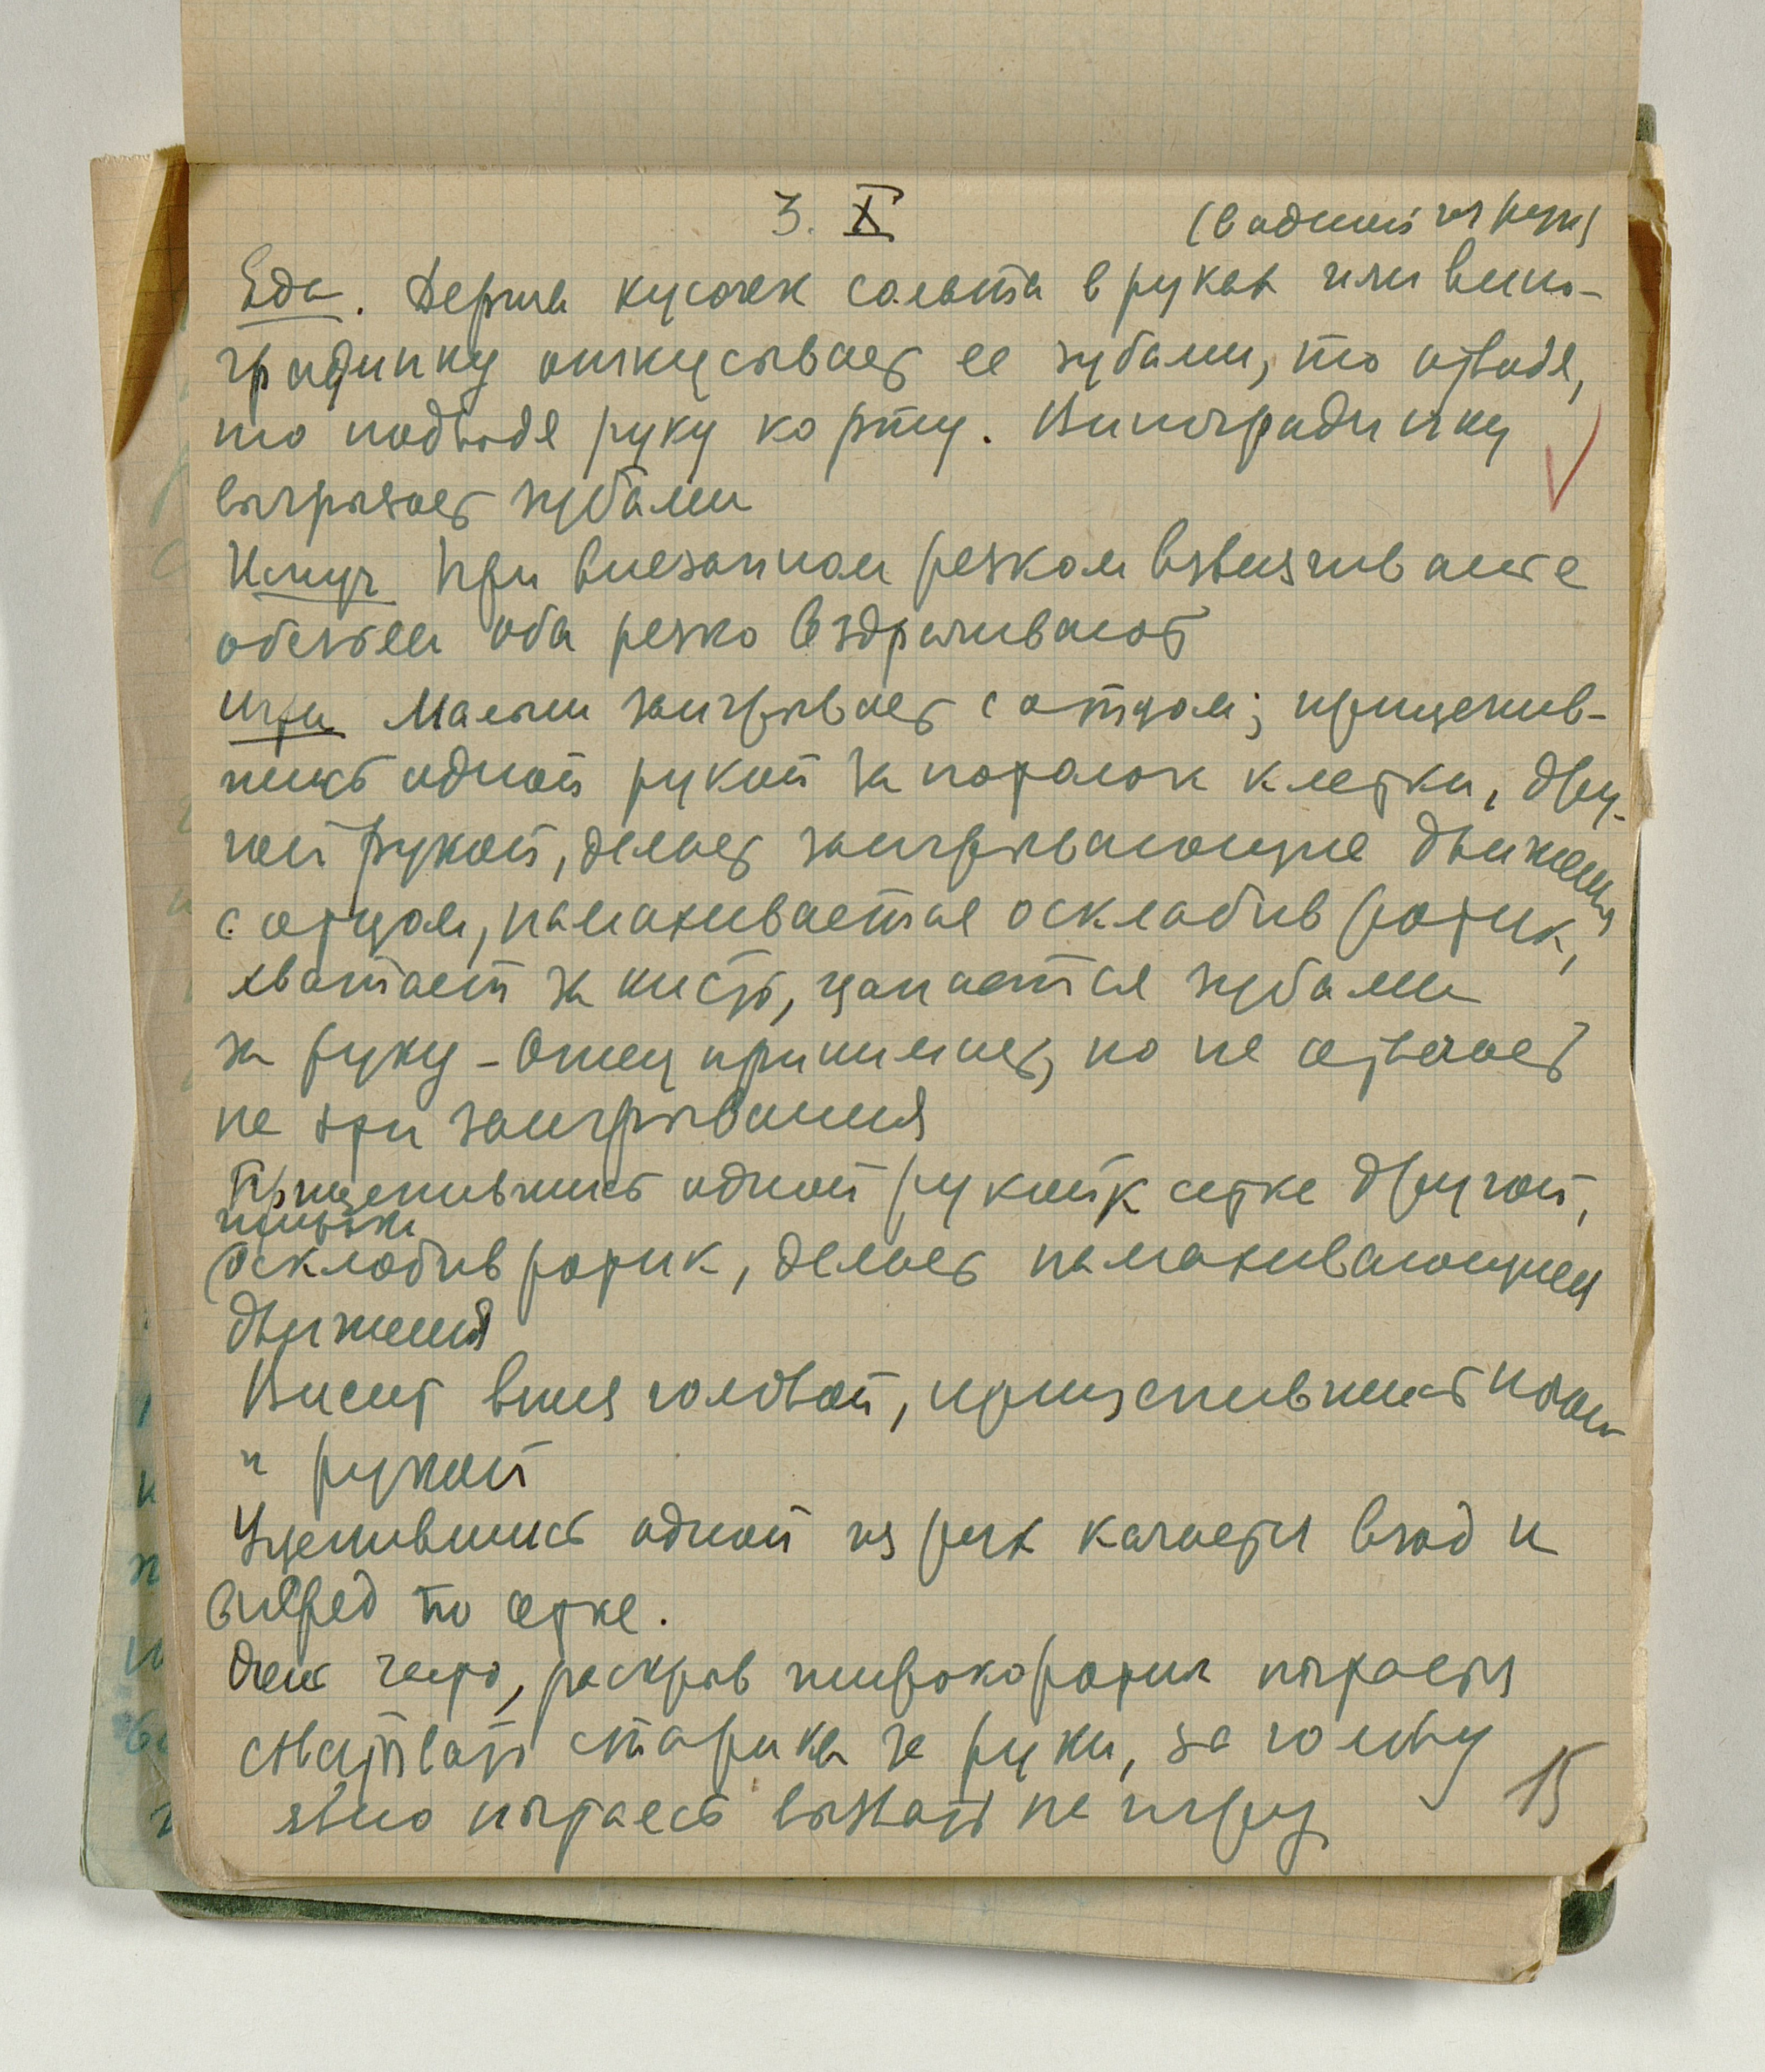 3. X
(в одной из рук)
Еда. Держа кусочек салата в руках или вино-
градинку откусывает ее зубами, то отводя,
то подводя руку ко рту. Виноградинку
выгрызает зубами
Испуг При внезапном резком взвизгивании
обезьян оба резко вздрагивают
Игра Малыш заигрывает с отцом; прицепив-
шись одной рукой за потолок клетки, дру-
гой рукой, делает заигрывающие движения
с отцом, намахивается осклабив ротик,
хватает за кисть, цапается зубами
за руку - Отец принимает, но не отвечает
на эти заигрывания
Прицепившись одной рукой к сетке другой,
осклабив ротик, делает намахивающиеся
движения
Висит вниз головой, прицепившись ногами
и рукой
Уцепившись одной из рук качается взад и
вперед по сетке.
Очень часто, раскрыв широко ротик пытается
схватывать старика за руки, за голову
явно пытаясь вызвать на игру
15